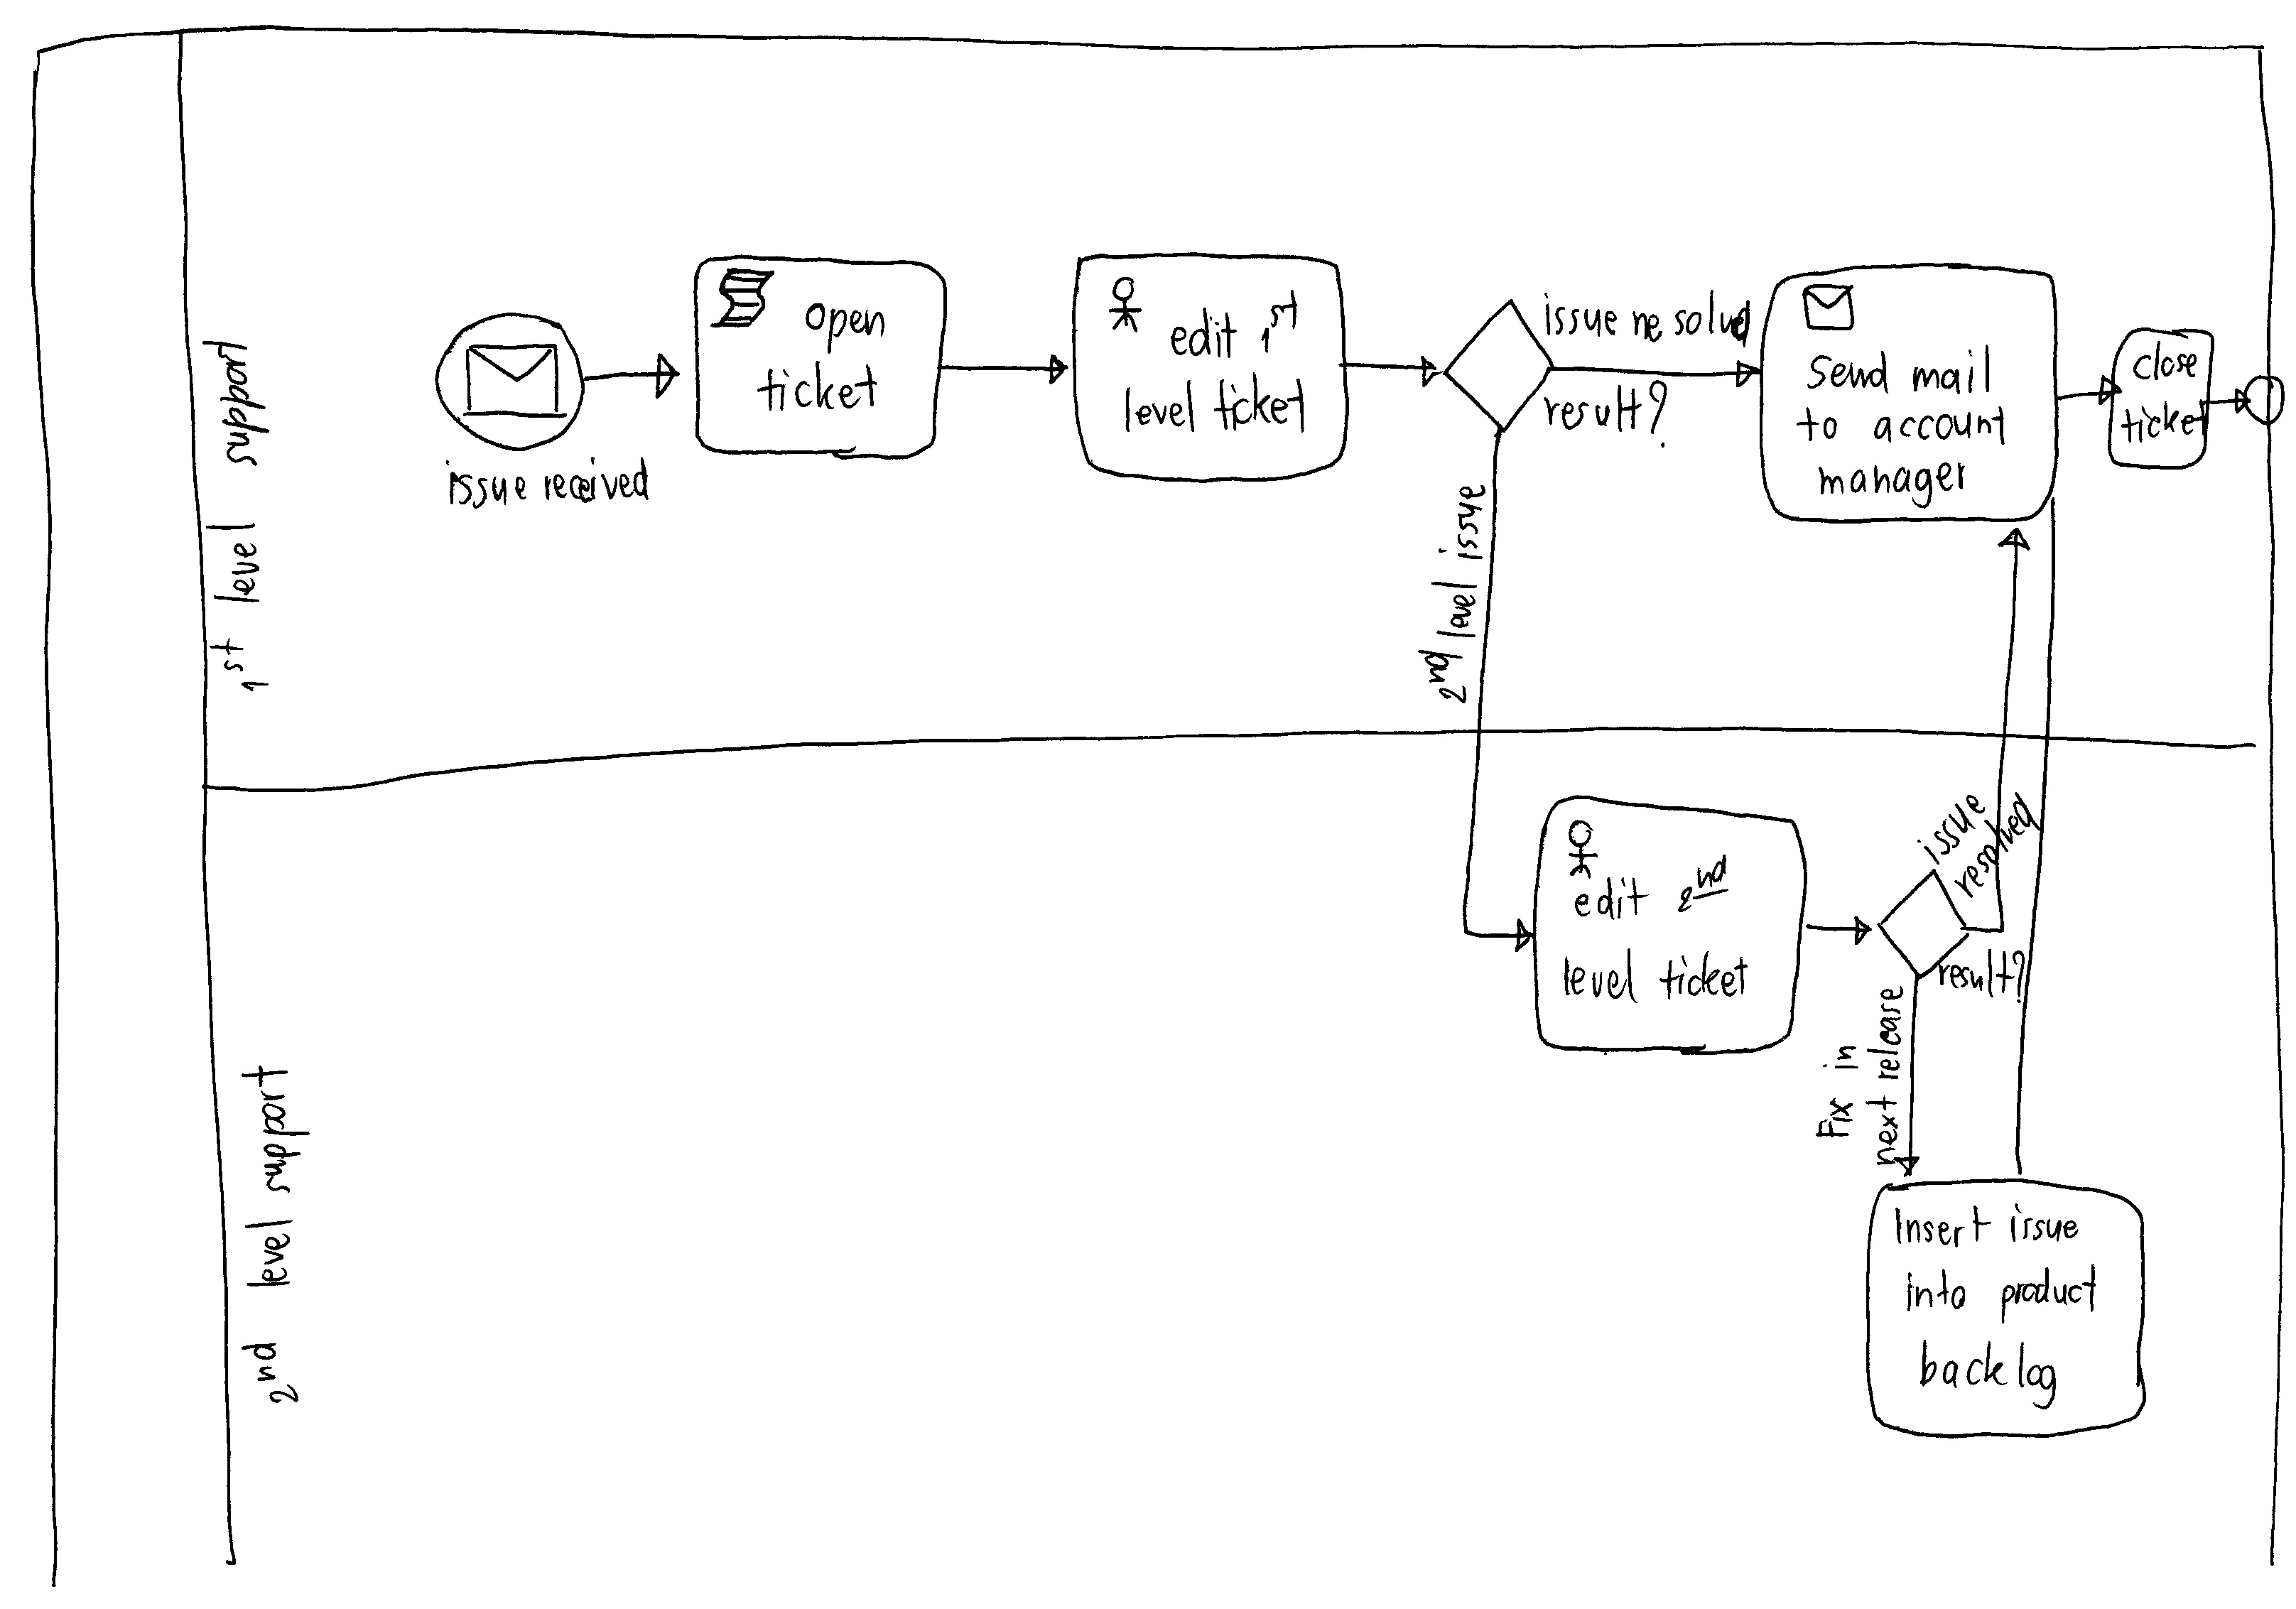 1st level support
issue received
open
ticket
edit 1st
level ticket
issue resolved
result?
Send mail
to account
manager
close
ticket
2nd level issue
2nd level support
edit 2nd
level ticket
issue
resolved
result?
Fix in
next release
Insert issue
into product
backlog